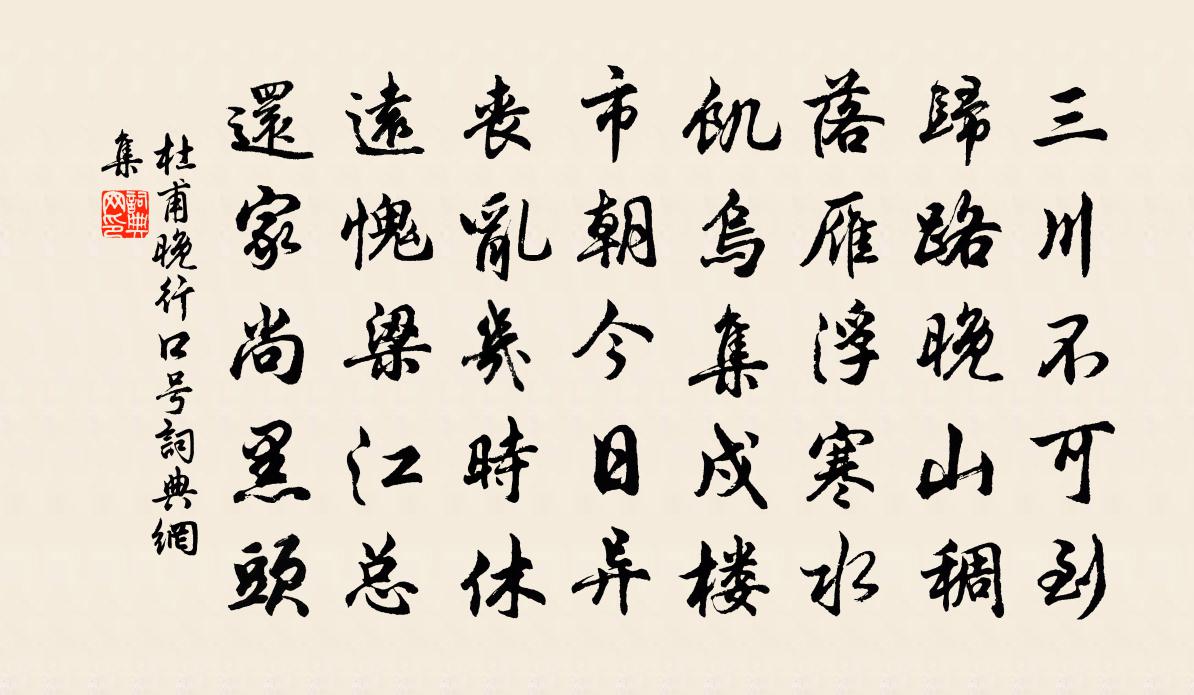 三川不可到
歸路晚山稠
落雁浮寒水
飢烏集戍楼
市朝今日异
喪亂幾時休
遠愧梁江总
還家尚黑頭
杜甫晚行口号詞典網
集
詞典
网印